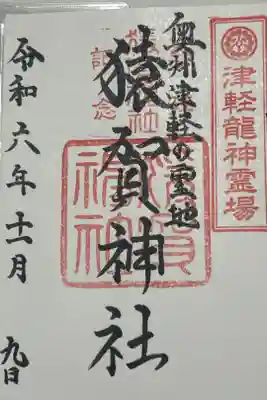 津軽龍神霊場
奥州津軽の霊地
猿賀神社
令和六年十一月九日